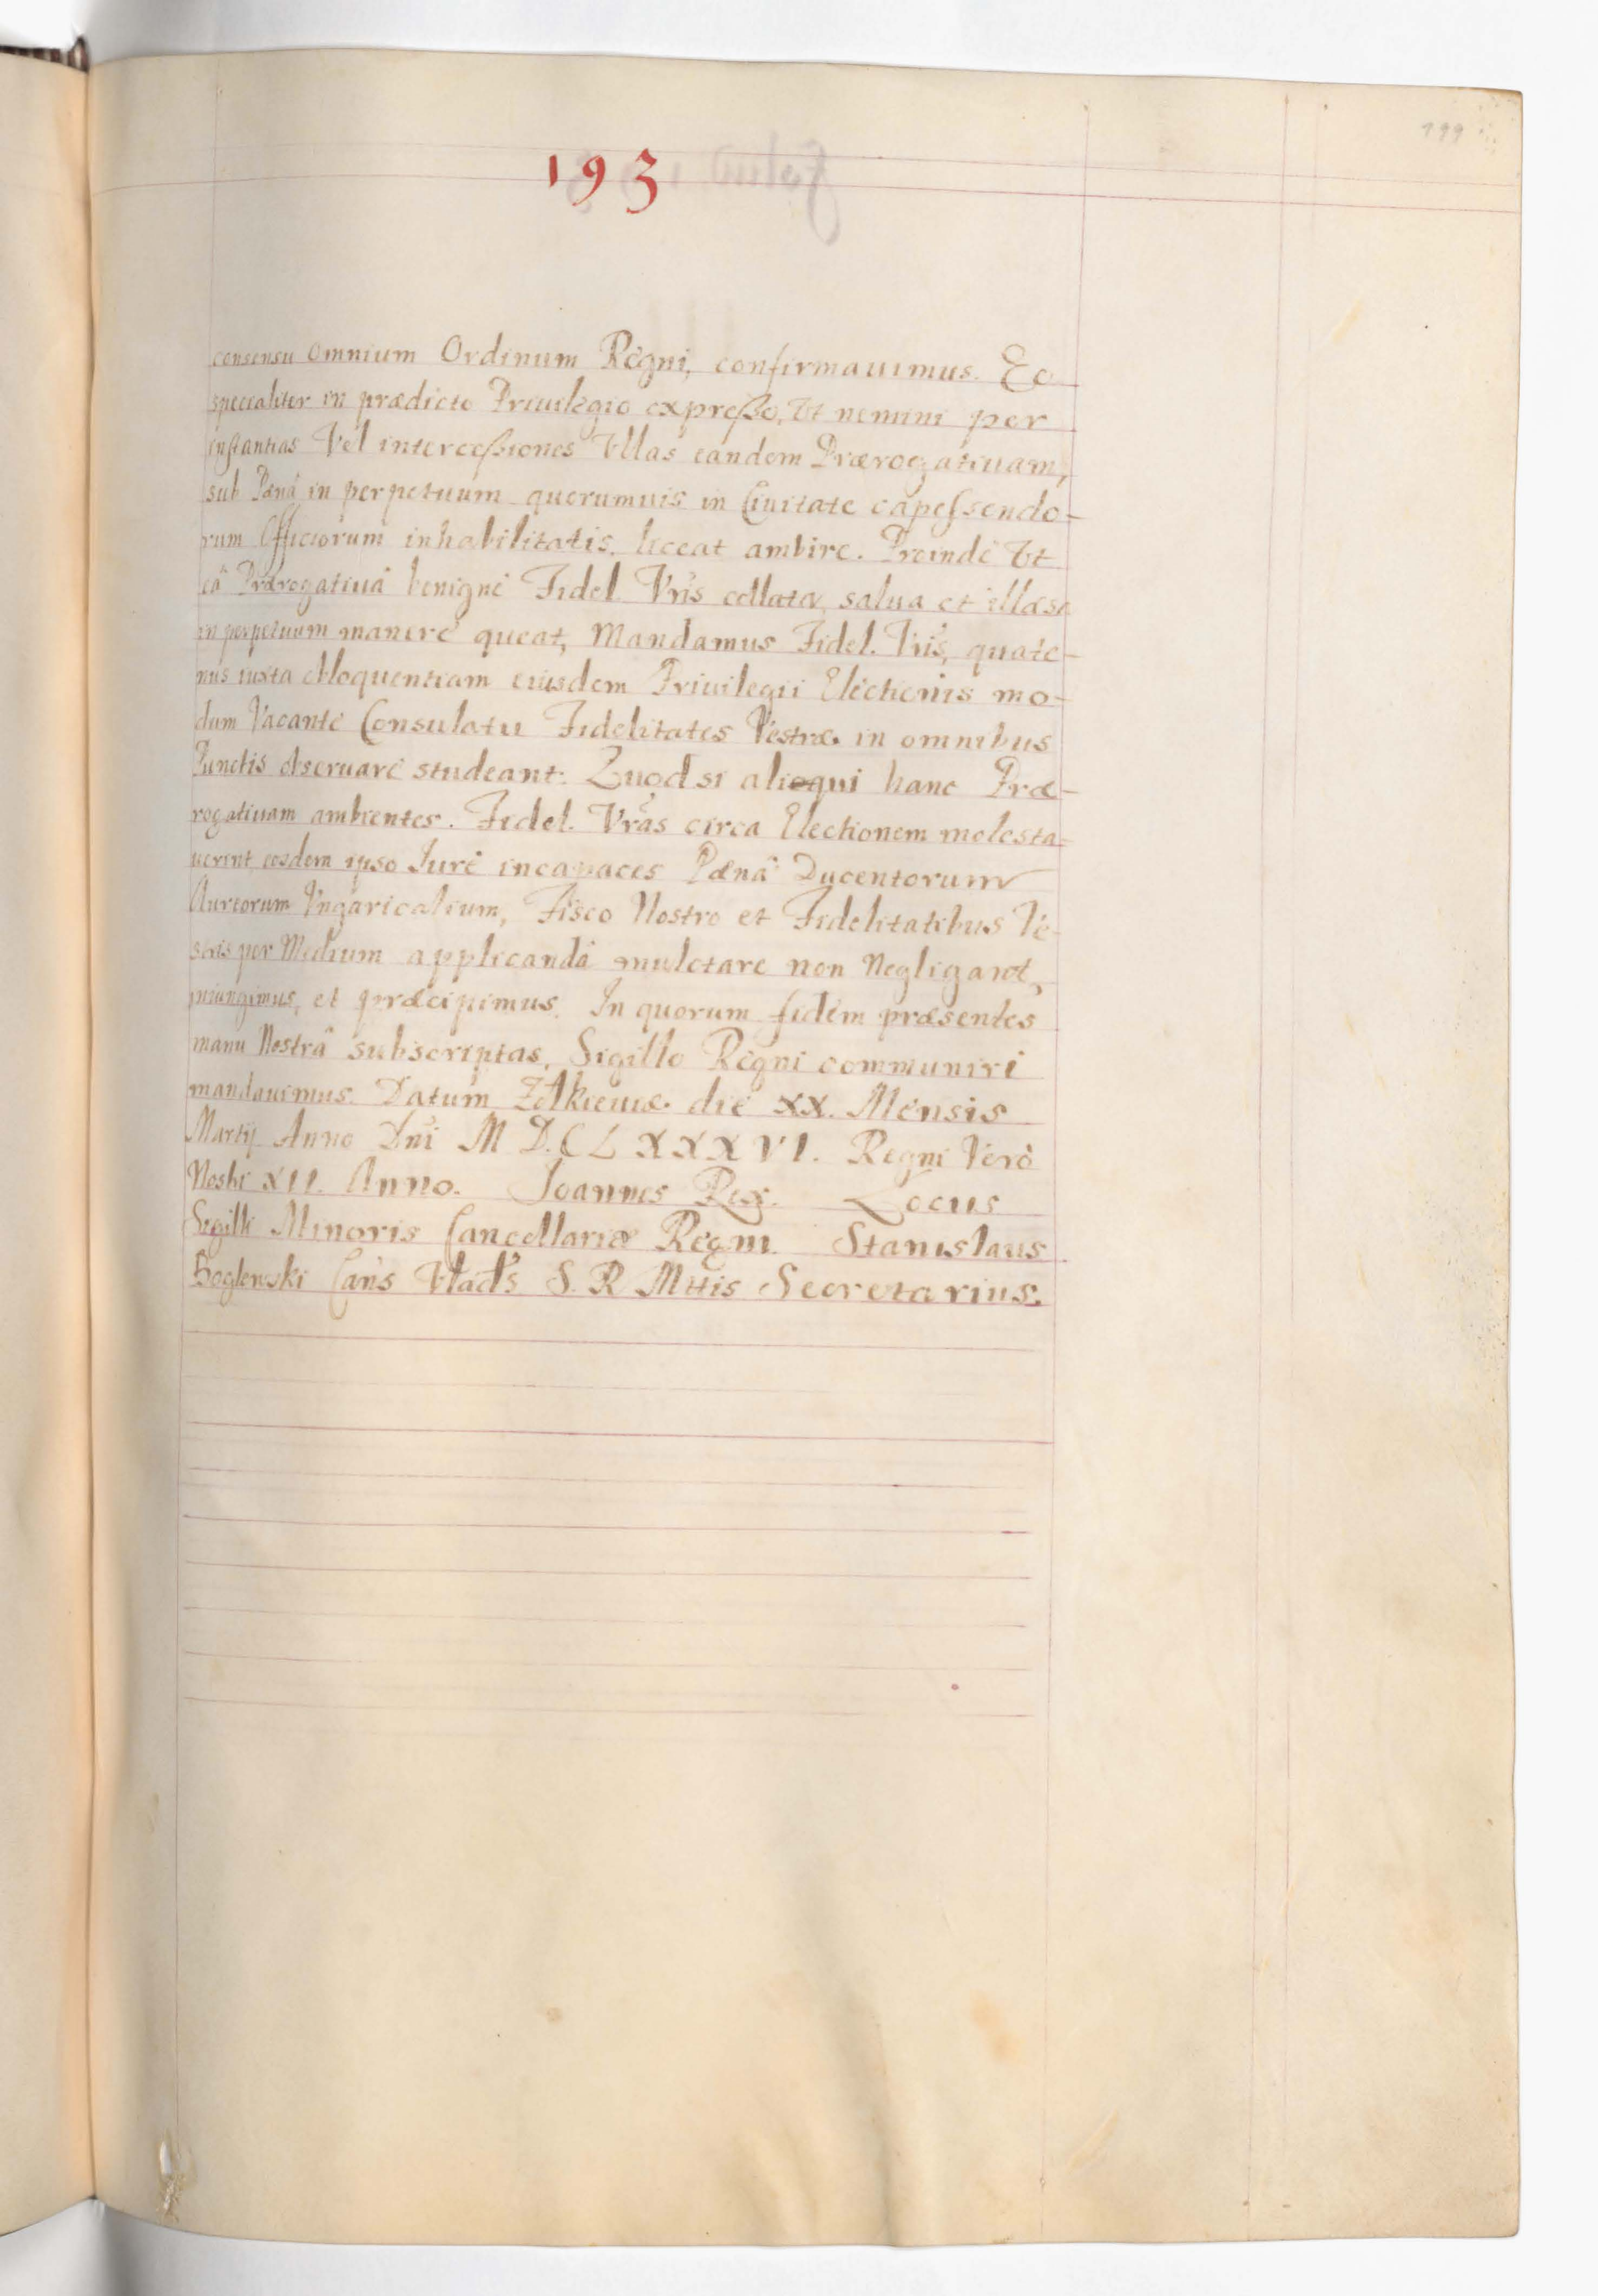 199
193
consensu omnium Ordinum Regni, confirmauimus. Eo
specealiter in prædicto Priuilegio expreßo, Vt nemini per
instantias Vel interceßiones Vllas eandem Prærogatiuam,
sub Pænâ in perpetuum quorumuis in Ciuitate capessendo-
rum Officiorum inhabilitatis, liceat ambire. Proindè Vt
eâ Prærogatiuâ benignè Fidel. Vris collata, salua et illæsa
in perpetuum manere queat, Mandamus Fidel. Vris, quate-
nus iuxta Eloquentiam eiusdem Priuilegii Electionis mo-
dum Vacante Consulatu Fidelitates Vestræ in omnibus
Punctis obseruare studeant. Quod si alioqui hanc Præ-
rogatiuam ambientes. Fidel. Vras circa Electionem molesta-
uerint, eosdem ipso Jure incapaces Pænâ Ducentorum
Aureorum Vngaricalium, Fisco Nostro et Fidelitatibus Ve-
stris per Medium applicandâ mulctare non Negligant,
iniungimus, et præcipimus. In quorum fidem præsentes
manu Nostrâ subscriptas, Sigillo Regni communiri
mandauimus. Datum Zolkieuiæ die XX. Mensis
Martij Anno Dni M D.C L X X X V I. Regni Verò
Nostri XII. Anno. Joannes Rex. Locus
Sigilli Minoris Cancellariæ Regni. Stanislaus
Boglewski Cans S. R. Mttis Secretarius.